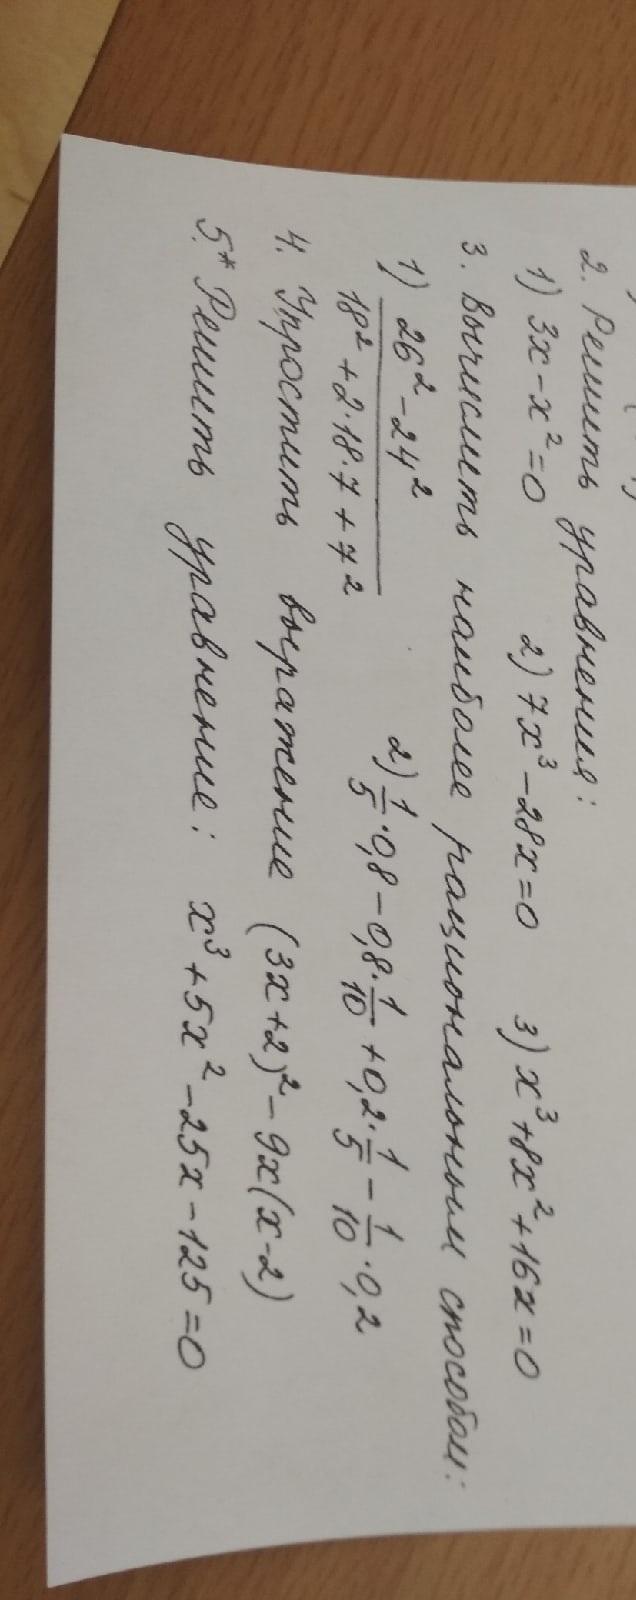 2. Решить уравнения:
1) 3x-x²=0 2) 7x³-28x=0 3) x³+8x²+16x=0
3. Вычислить наиболее рациональным способом:
1) (26²-24²)/(18²+2·18·7+7²) 2) 1/5·0,8-0,8·1/10+0,2·1/5-1/10·0,2
4. Упростить выражение (3x+2)²-9x(x-2)
5.* Решить уравнение: x³+5x²-25x-125=0